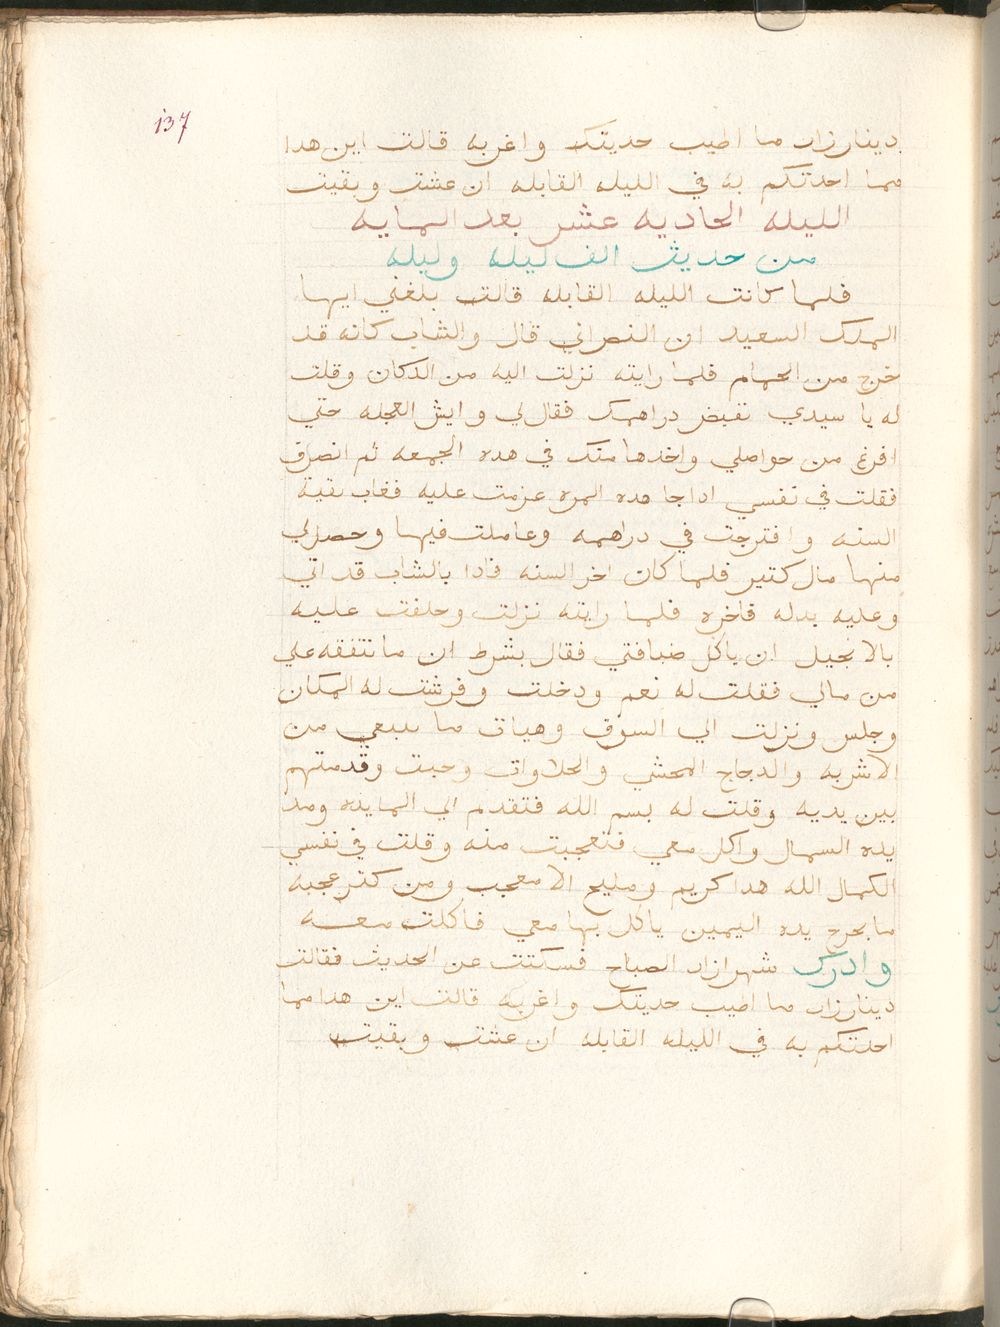 137
دينارزاد ما اطيب حديتك واغربه قالت اين هدا
مما احدتكم به في الليله القابله ان عشت وبقيت
الليله الحاديه عشر بعد المايه
من حديث الف ليله وليله
فلما كانت الليله القابله قالت بلغني ايها
الملك السعيد ان النصراني قال والشاب كانه قد
خرج من الحمام فلما رايته نزلت اليه من الدكان وقلت
له يا سيدي تقبض دراهمك فقال لي وايش العجله حتي
افرغ من حواصلي واخدها منك في هده الجمعه ثم انصرف
فقلت في نفسي ادا جا هده المره عزمت عليه فغاب بقية
السنه وافترجت في دراهمه وعاملت فيها وحصل لي
منها مال كتير فلما كان اخر السنه فادا بالشاب قد اتي
وعليه بدله فاخره فلما رايته نزلت وحلفت عليه
بالانجيل ان ياكل ضيافتي فقال بشرط ان ما تنفقه علي
من مالي فقلت له نعم ودخلت وفرشت له المكان
وجلس ونزلت الي السوق وهيات ما ينبغي من
الاشربه والدجاج المحشي والحلاوات وجيت وقدمتهم
بين يديه وقلت له بسم الله فتقدم الي المايده ومد
يده السمال واكل معي فتعجبت منه وقلت في نفسي
الكمال الله هدا كريم ومليح الا معجب ومن كتر عجبه
ما يخرج يده اليمين ياكل بها معي فاكلت معه
وادرك شهرازاد الصباح فسكتت عن الحديث فقالت
دينارزاد ما اطيب حديتك واغربه قالت اين هدا مما
احدتكم به في الليله القابله ان عشت وبقيت